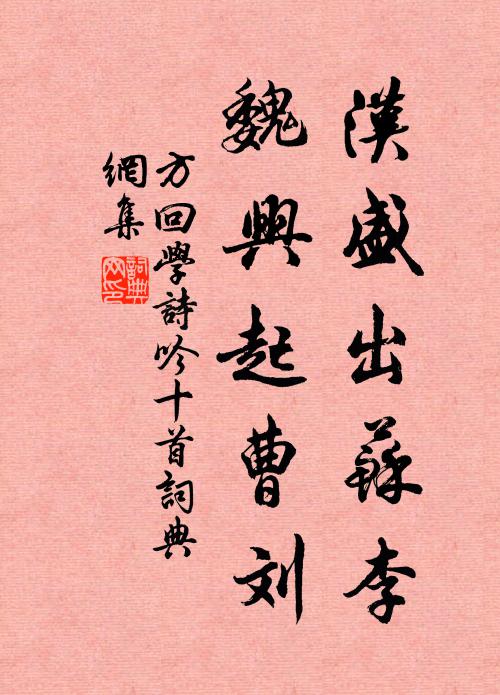 漢盛出蘇李
魏興起曹刘
方回學詩吟十首詞典
網集
詞典
网印